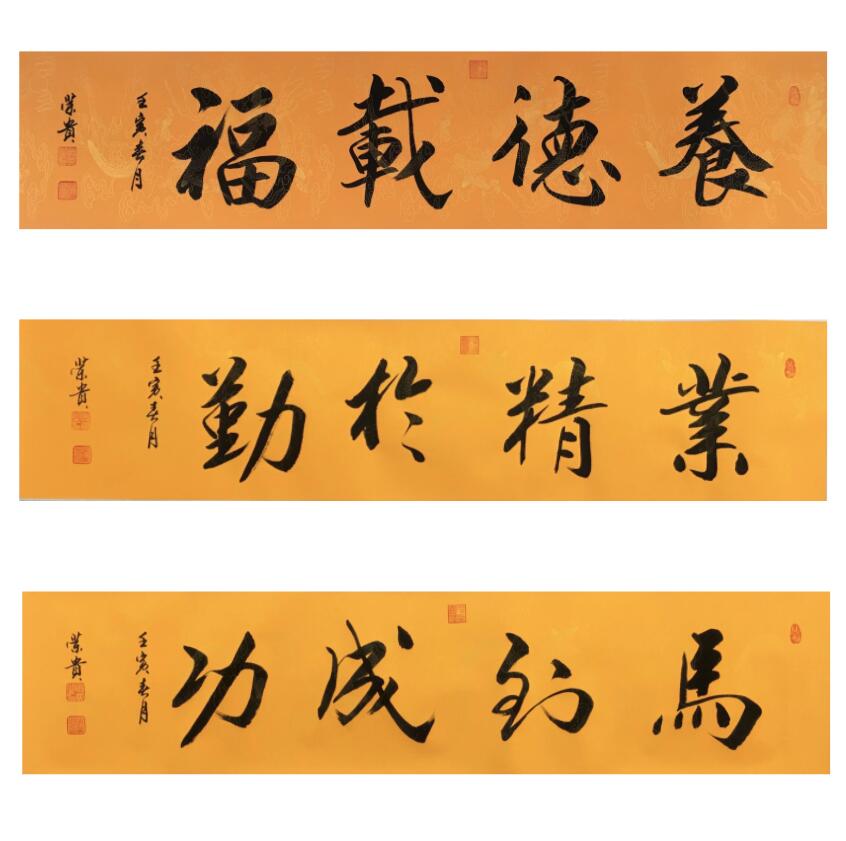 養德載福
壬寅春月
榮貴
業精於勤
壬寅春月
榮貴
馬到成功
壬寅春月
榮貴